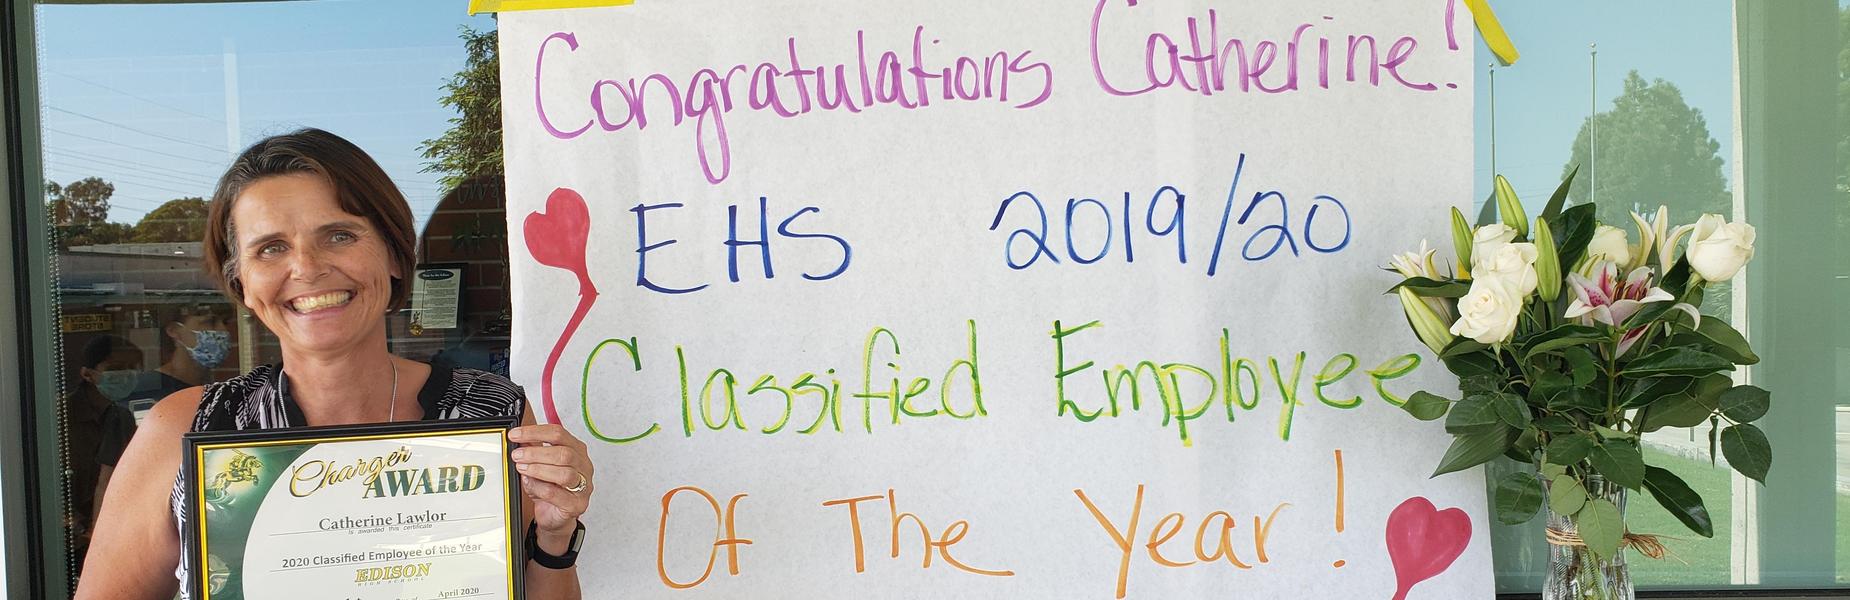 Congratulations Catherine!
EHS 2019/20
Classified Employee
Of The Year!
Charger
AWARD
Catherine Lawlor
is awarded this certificate
2020 Classified Employee of the Year
EDISON
HIGH SCHOOL
April 2020
STUDENT
STORE